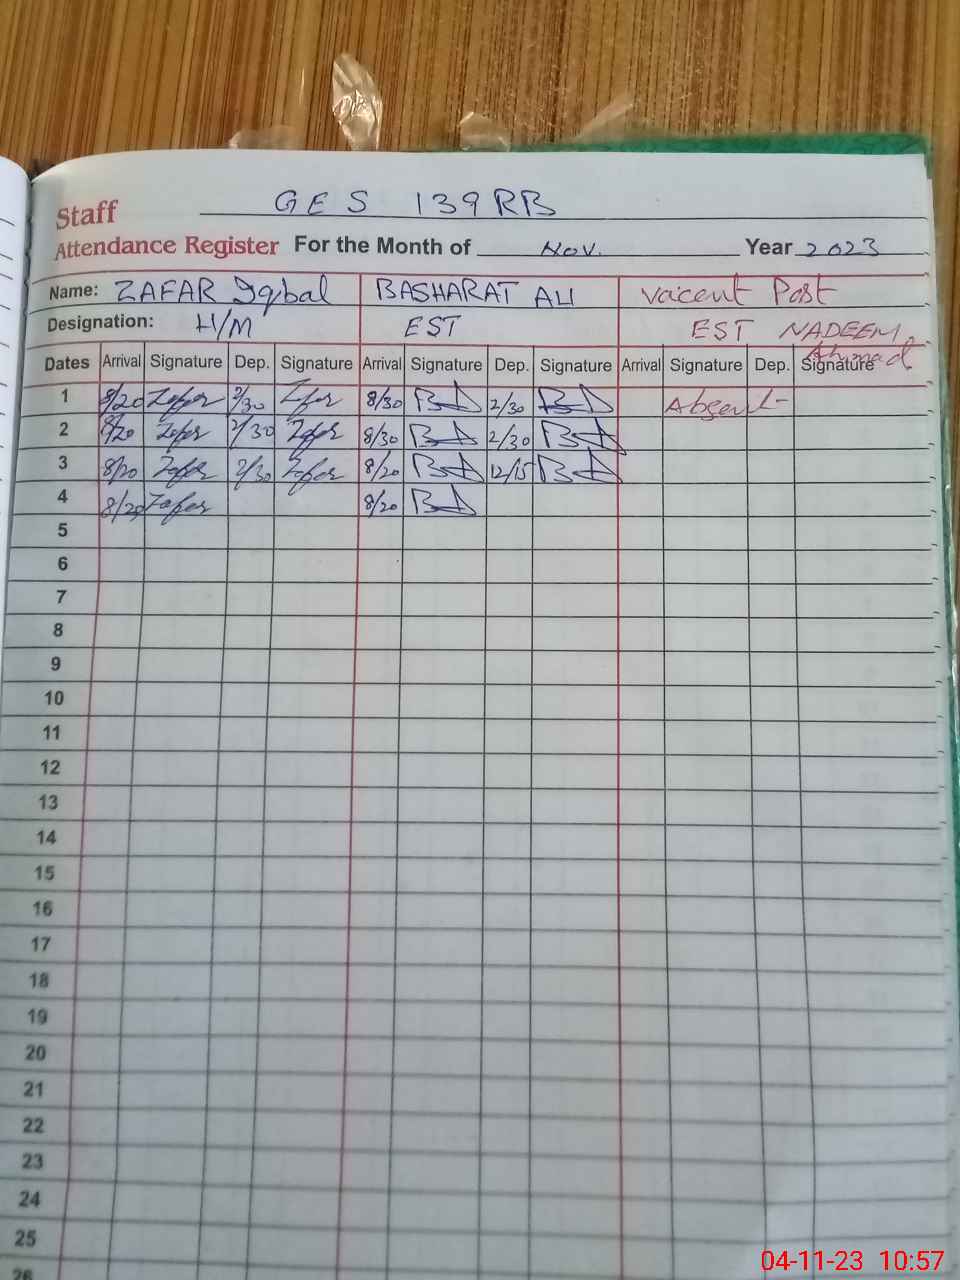 GES 139RB
Staff
Attendance Register For the Month of Nov. Year 2023
Name: ZAFAR Iqbal BASHARAT ALI Vacent Post
Designation: H/M EST EST NADEEM Ahmad
Dates Arrival Signature Dep. Signature Arrival Signature Dep. Signature Arrival Signature Dep. Signature
1 8/20 Zafar 2/30 Zafar 8/30 BA 2/30 BA Absent
2 8/20 Zafar 2/30 Zafar 8/30 BA 2/30 BA
3 8/20 Zafar 2/30 Zafar 8/20 BA 12/15 BA
4 8/20 Zafar 8/20 BA
5
6
7
8
9
10
11
12
13
14
15
16
17
18
19
20
21
22
23
24
25
26
04-11-23 10:57